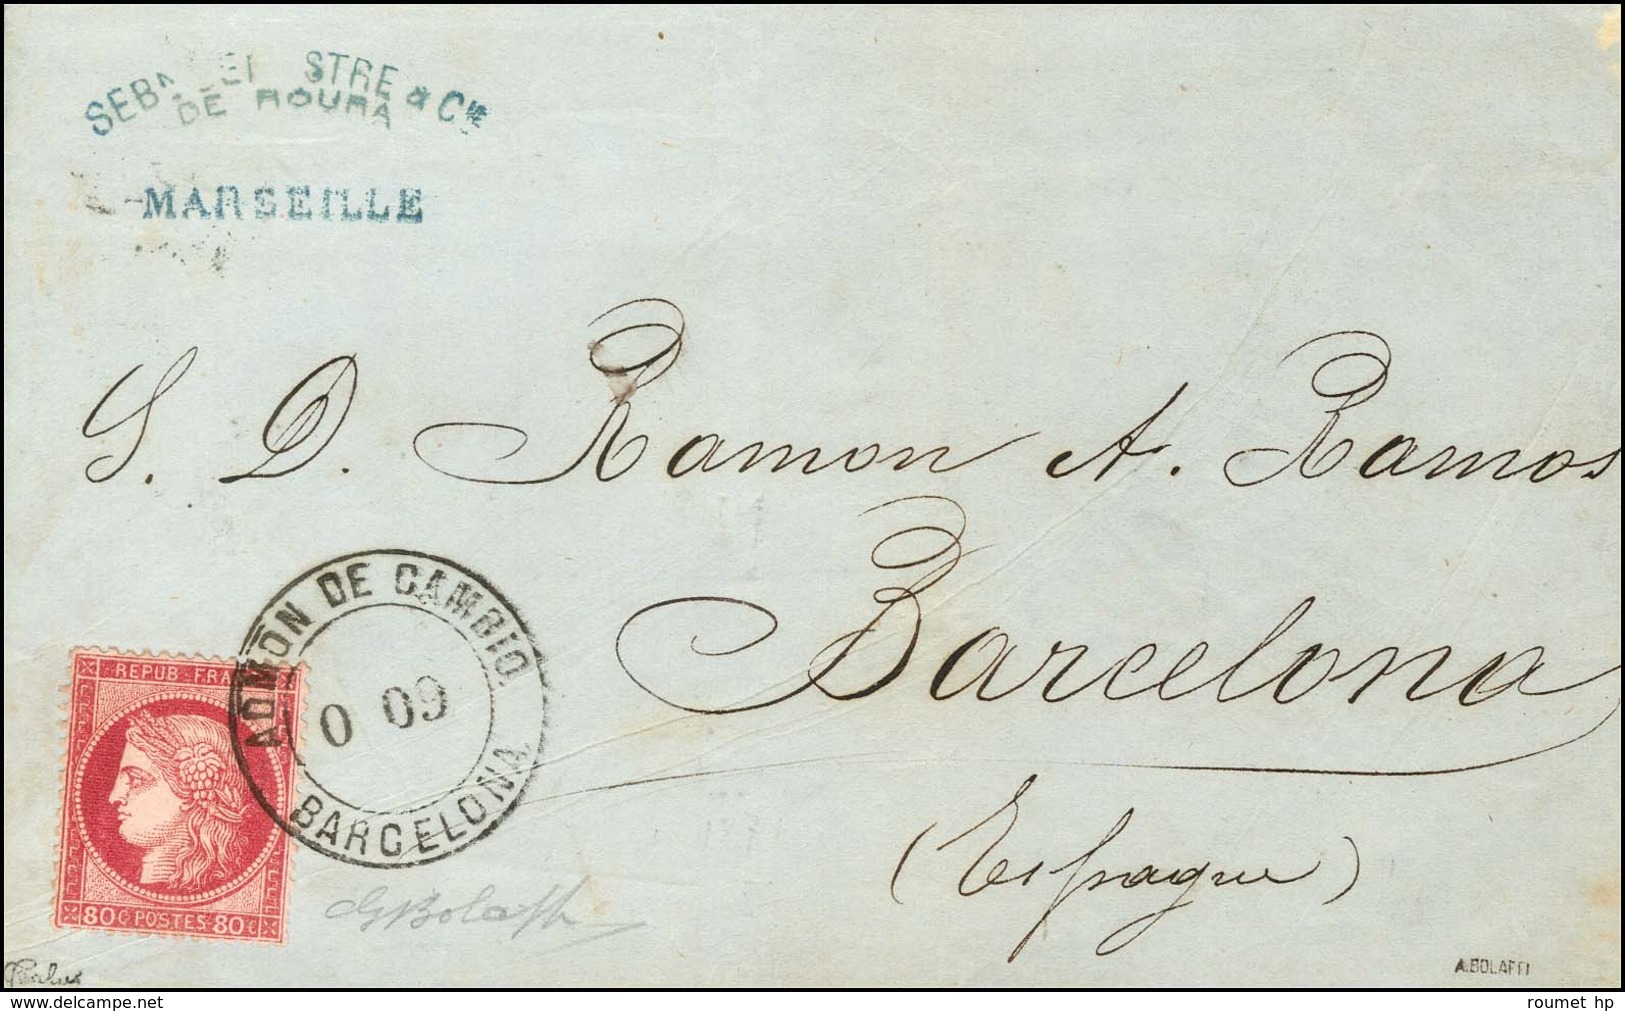 STRE & Cie
DE ROURA
MARSEILLE
S. D. Ramon A. Ramos
Barcelona
(Espagne)
ADMÓN DE CAMBIO
0 09
BARCELONA
REPUB. FRA
80 C POSTES 80 C
GBolaffi
A.BOLAFFI
www.delcampe.net
roumet hp